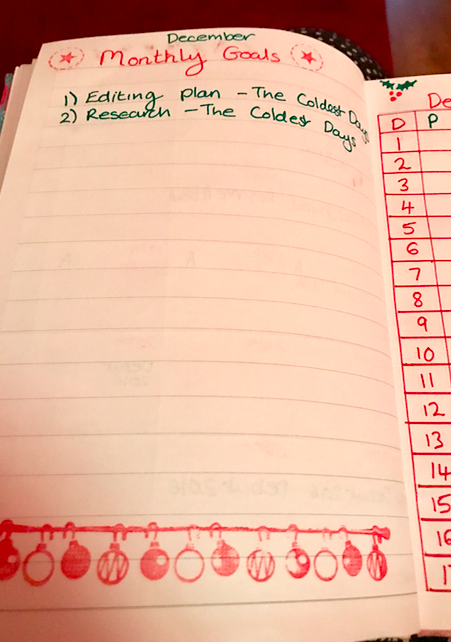 December
Monthly Goals
1) Editing Plan - The Coldest Days
2) Research - The Coldest Days
De
D P
1
2
3
4
5
6
7
8
9
10
11
12
13
14
15
16